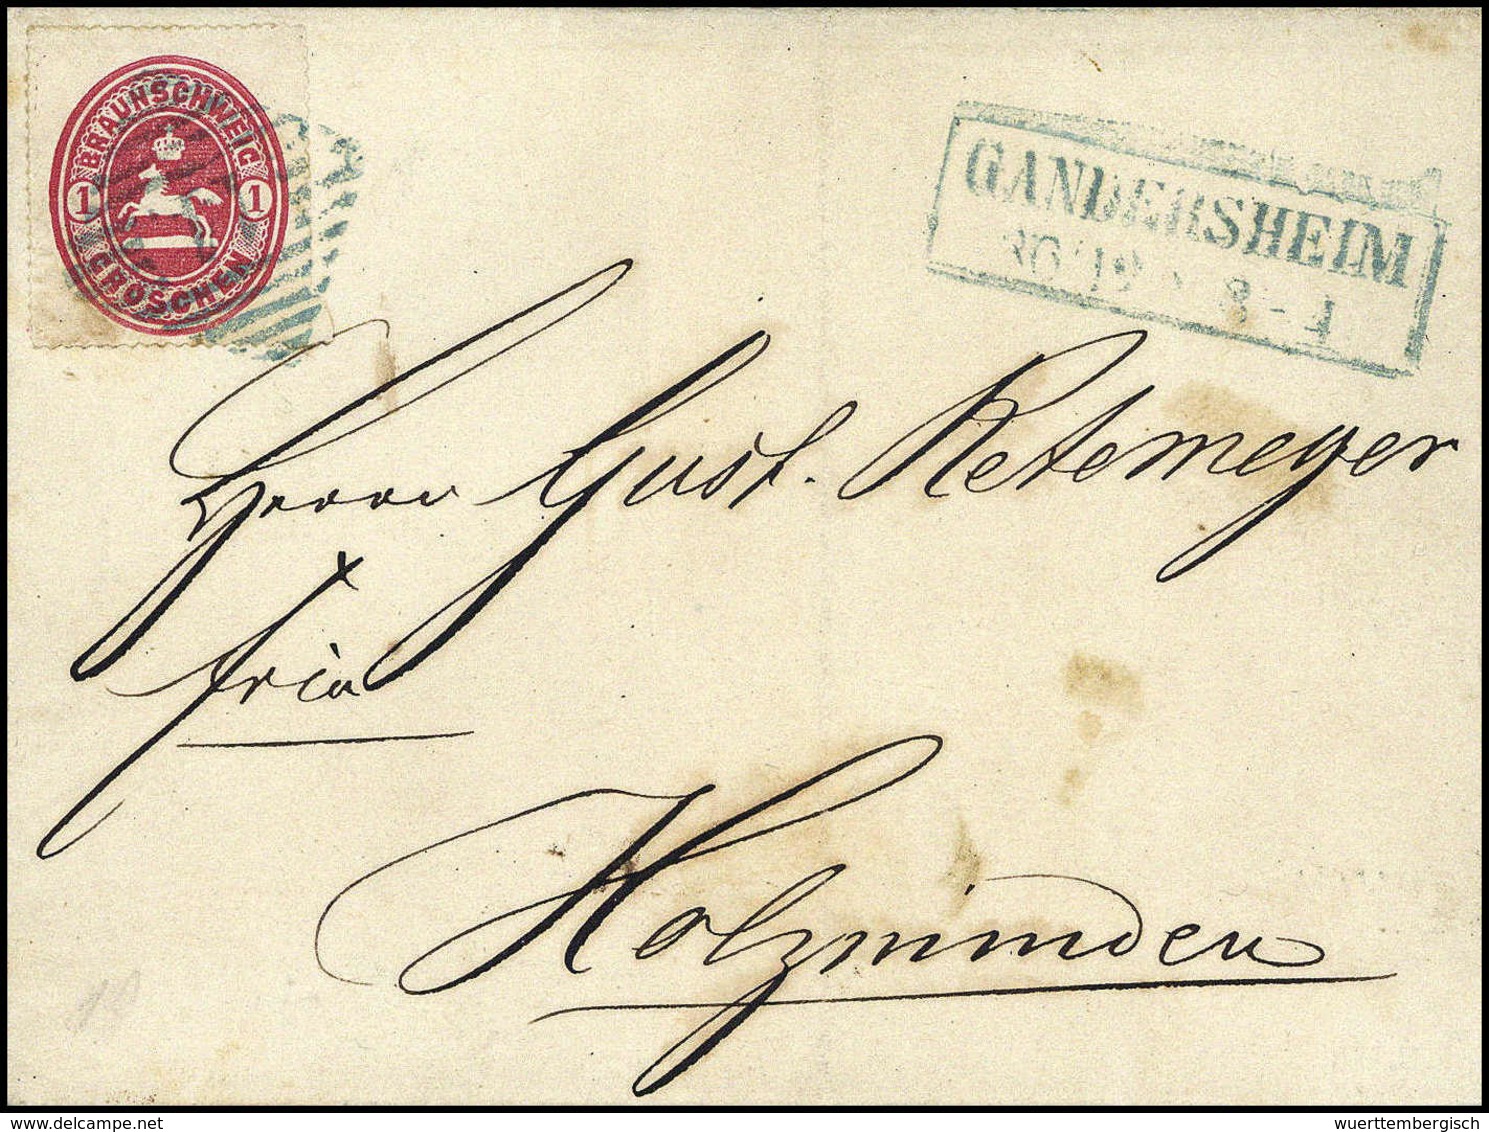 BRAUNSCHWEIG
1 1
GROSCHEN
GANDERSHEIM
30 12 3-4
Herrn Gust. Retemeyer
fr
Holzminden
delcampe.net
wuerttembergisch